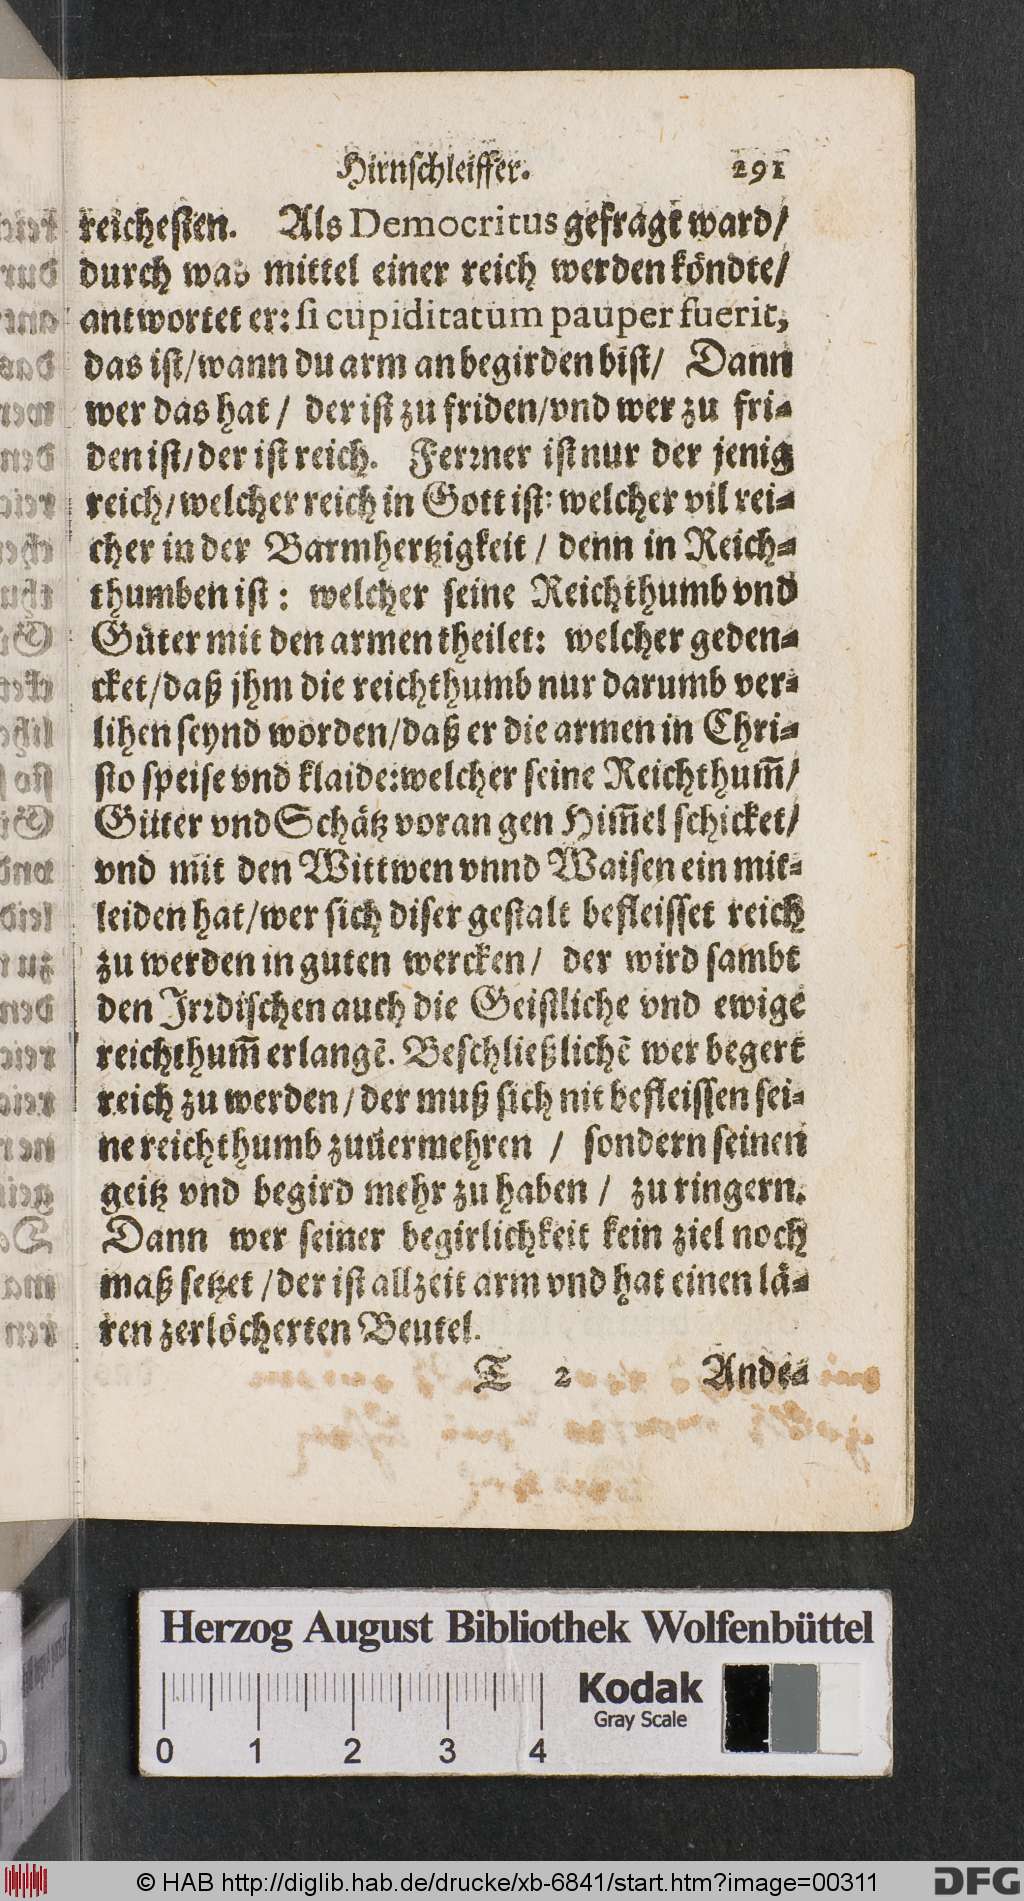 Hirnschleiffer. 291
reichesten. Als Democritus gefragt ward/
durch was mittel einer reich werden köndte/
antwortet er: si cupiditatum pauper fuerit,
das ist/wann du arm an begirden bist/ Dann
wer das hat / der ist zu friden/vnd wer zu fri-
den ist/der ist reich. Ferrner ist nur der jenig
reich/welcher reich in Gott ist: welcher vil rei-
cher in der Barmhertzigkeit / denn in Reich-
thumben ist : welcher seine Reichthumb vnd
Güter mit den armen theilet: welcher geden-
cket/daß jhm die reichthumb nur darumb ver-
lihen seynd worden/daß er die armen in Chri-
sto speise vnd klaide:welcher seine Reichthum̃/
Güter vnd Schätz voran gen Him̃el schicket/
vnd mit den Wittwen vnnd Waisen ein mit-
leiden hat/wer sich diser gestalt befleisset reich
zu werden in guten wercken / der wird sambt
den Irrdischen auch die Geistliche vnd ewige
reichthum̃ erlangẽ. Beschließlichẽ wer begert
reich zu werden / der muß sich nit befleissen sei-
ne reichthumb zuuermehren / sondern seinen
geitz vnd begird mehr zu haben / zu ringern.
Dann wer seiner begirlichkeit kein ziel noch
maß setzet /der ist allzeit arm vnd hat einen lä-
ren zerlöcherten Beutel.
T 2 Ande-
Herzog August Bibliothek Wolfenbüttel
Kodak
Gray Scale
0 1 2 3 4
© HAB http://diglib.hab.de/drucke/xb-6841/start.htm?image=00311
DFG